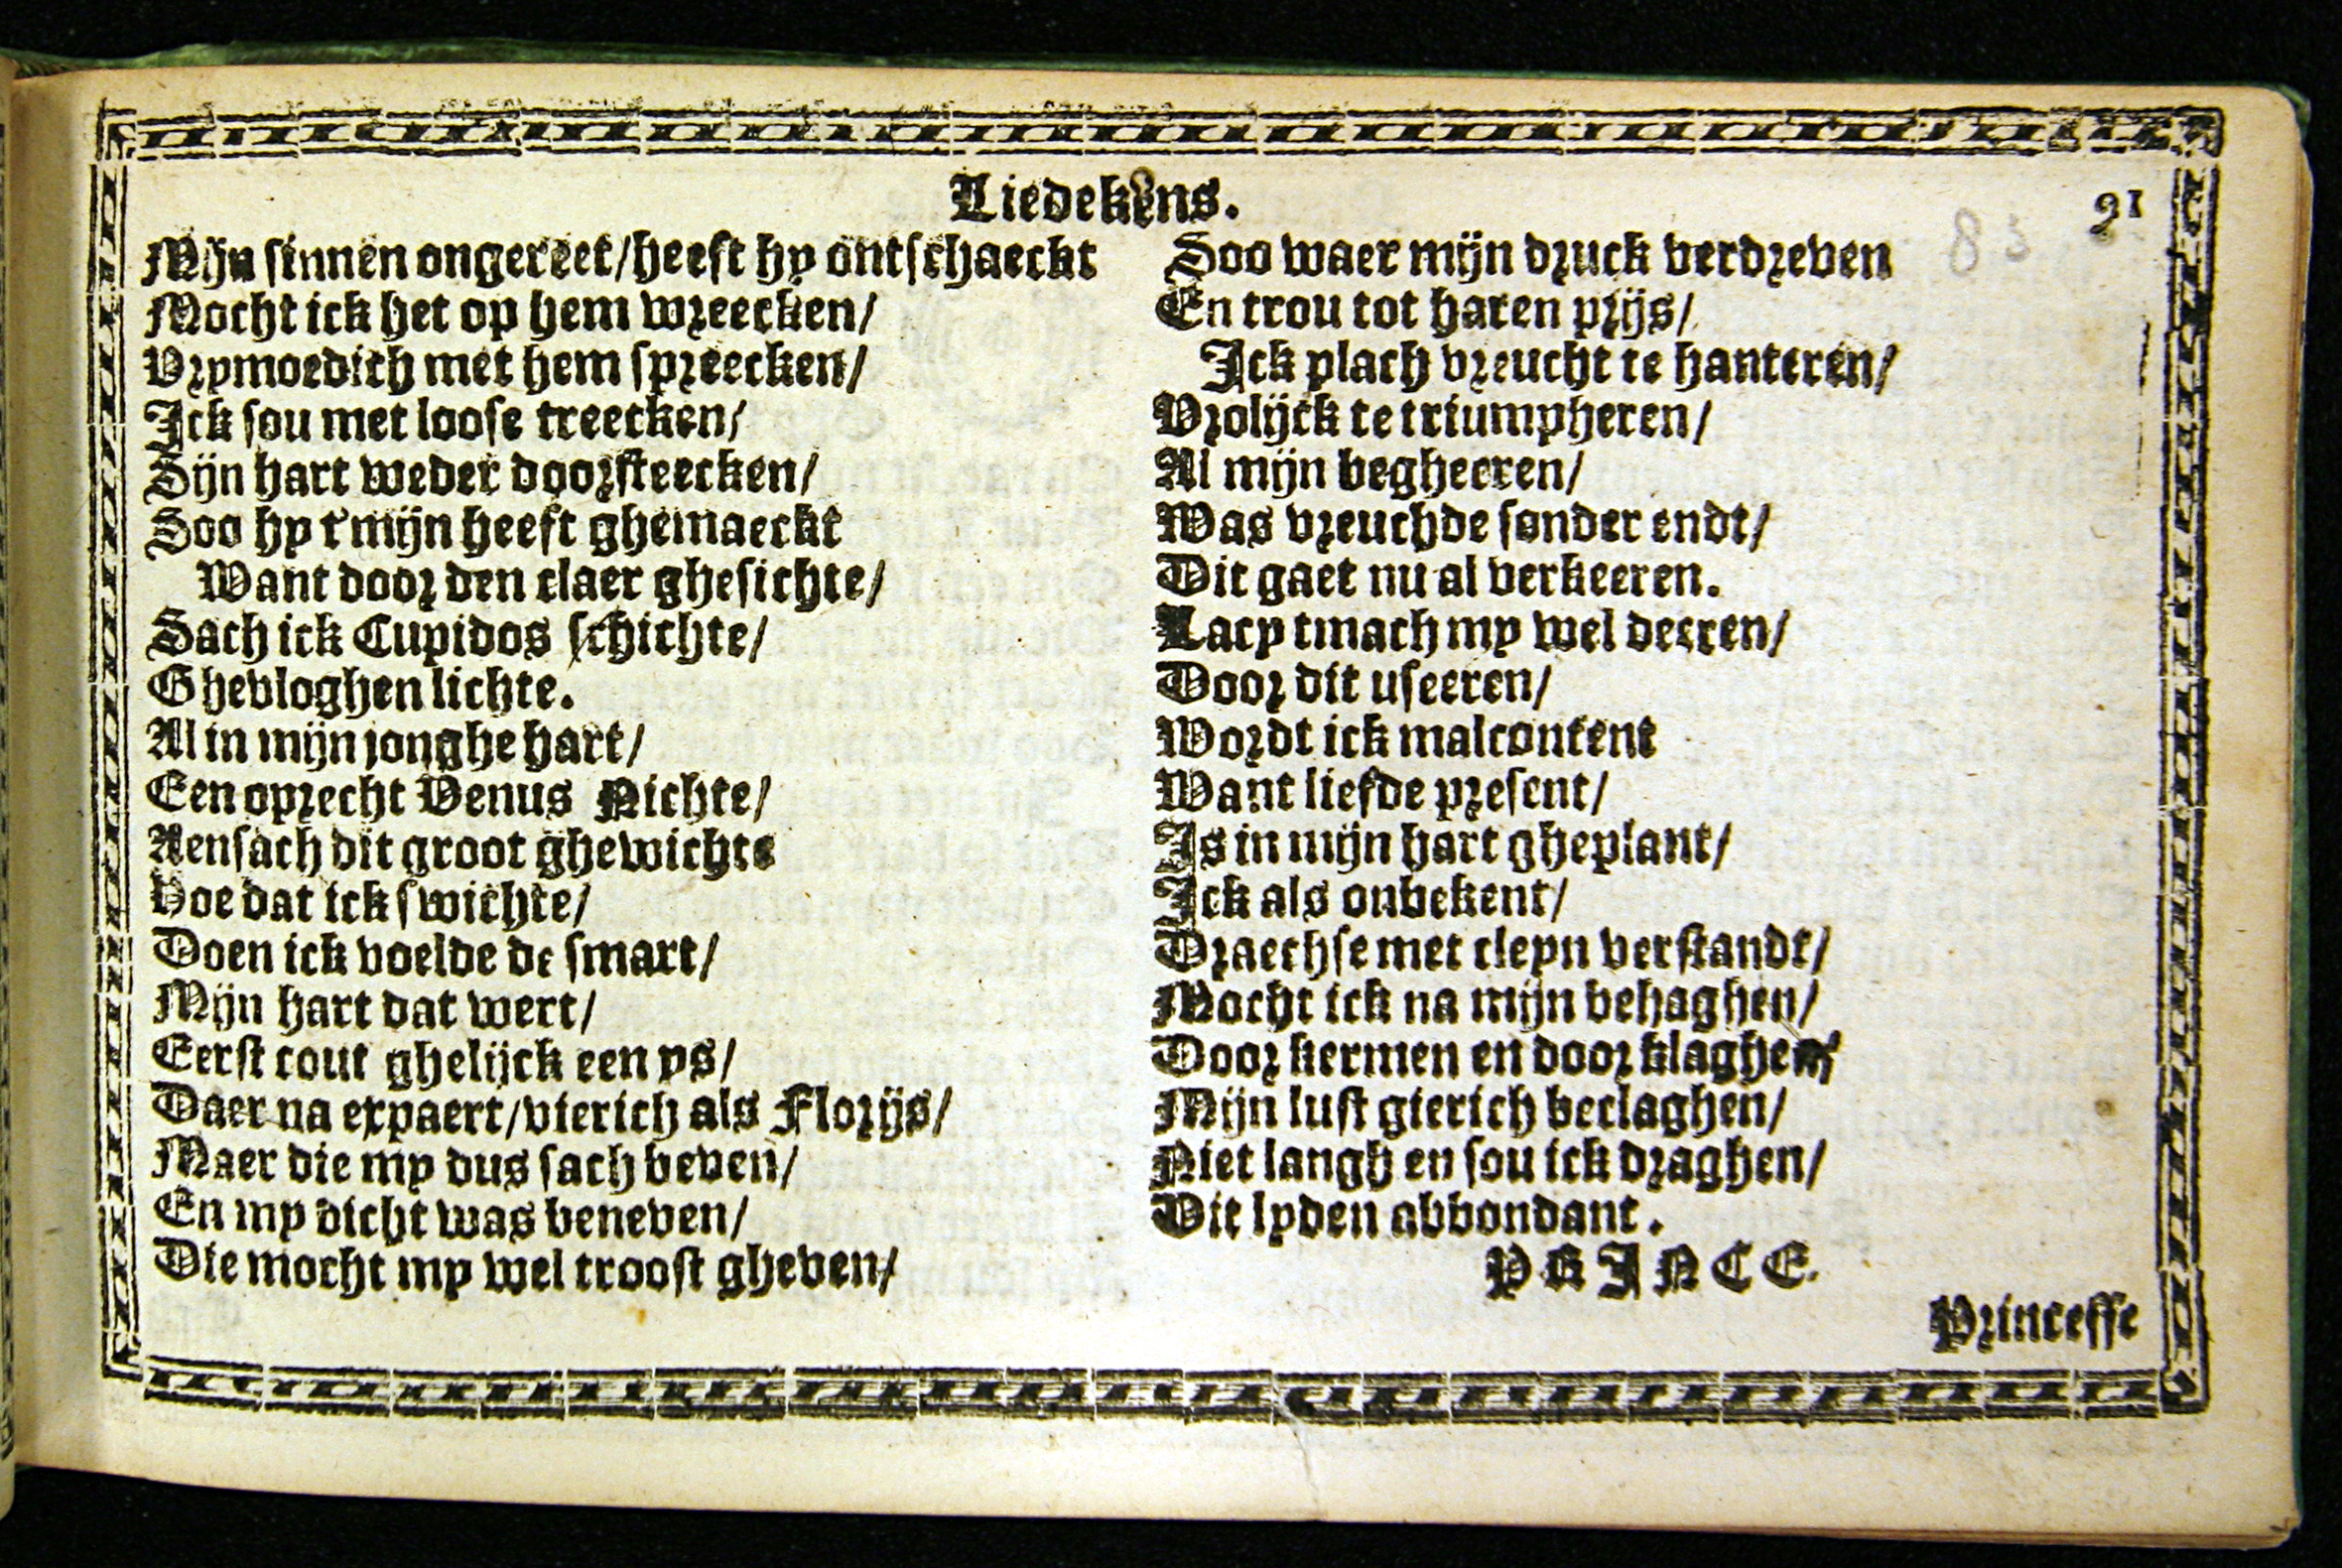 Liedekens.
21
Mijn sinnen ongereet/heeft hy ontschaeckt
Mocht ick het op hem wreecken/
Vrymoedich met hem spreecken/
Ick sou met loose treecken/
Sijn hart weder doorsteecken/
Soo hy t'mijn heeft ghemaeckt
Want door den claer ghesichte/
Sach ick Cupidos schichte/
Ghevloghen lichte.
Al in mijn jonghe hart/
Een oprecht Venus Nichte/
Aensach dit groot ghewichte
Hoe dat ick swichte/
Doen ick voelde de smart/
Mijn hart dat wert/
Eerst cout ghelijck een ys/
Daer na expaert/vierich als Florijs/
Maer die my dus sach beven/
En my dicht was beneven/
Die mocht my wel troost gheven/
Soo waer mijn druck verdreven
En trou tot haren prijs/
Ick plach vreucht te hanteren/
Vrolijck te triumpheren/
Al mijn begheeren/
Was vreuchde sonder endt/
Dit gaet nu al verkeeren.
Lacy tmach my wel deeren/
Door dit useeren/
Wordt ick malcontent
Want liefde present/
Is in mijn hart gheplant/
Ick als onbekent/
Draechse met cleyn verstandt/
Mocht ick na mijn behaghen/
Door kermen en door klaghen/
Mijn lust gierich beclaghen/
Niet langh en sou ick draghen/
Dit lyden abbondant.
PRINCE.
Princesse